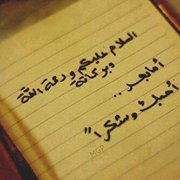 السلام عليكم ورحمة الله
وبركاتة
أما بعد ..
أحبك وشكراً